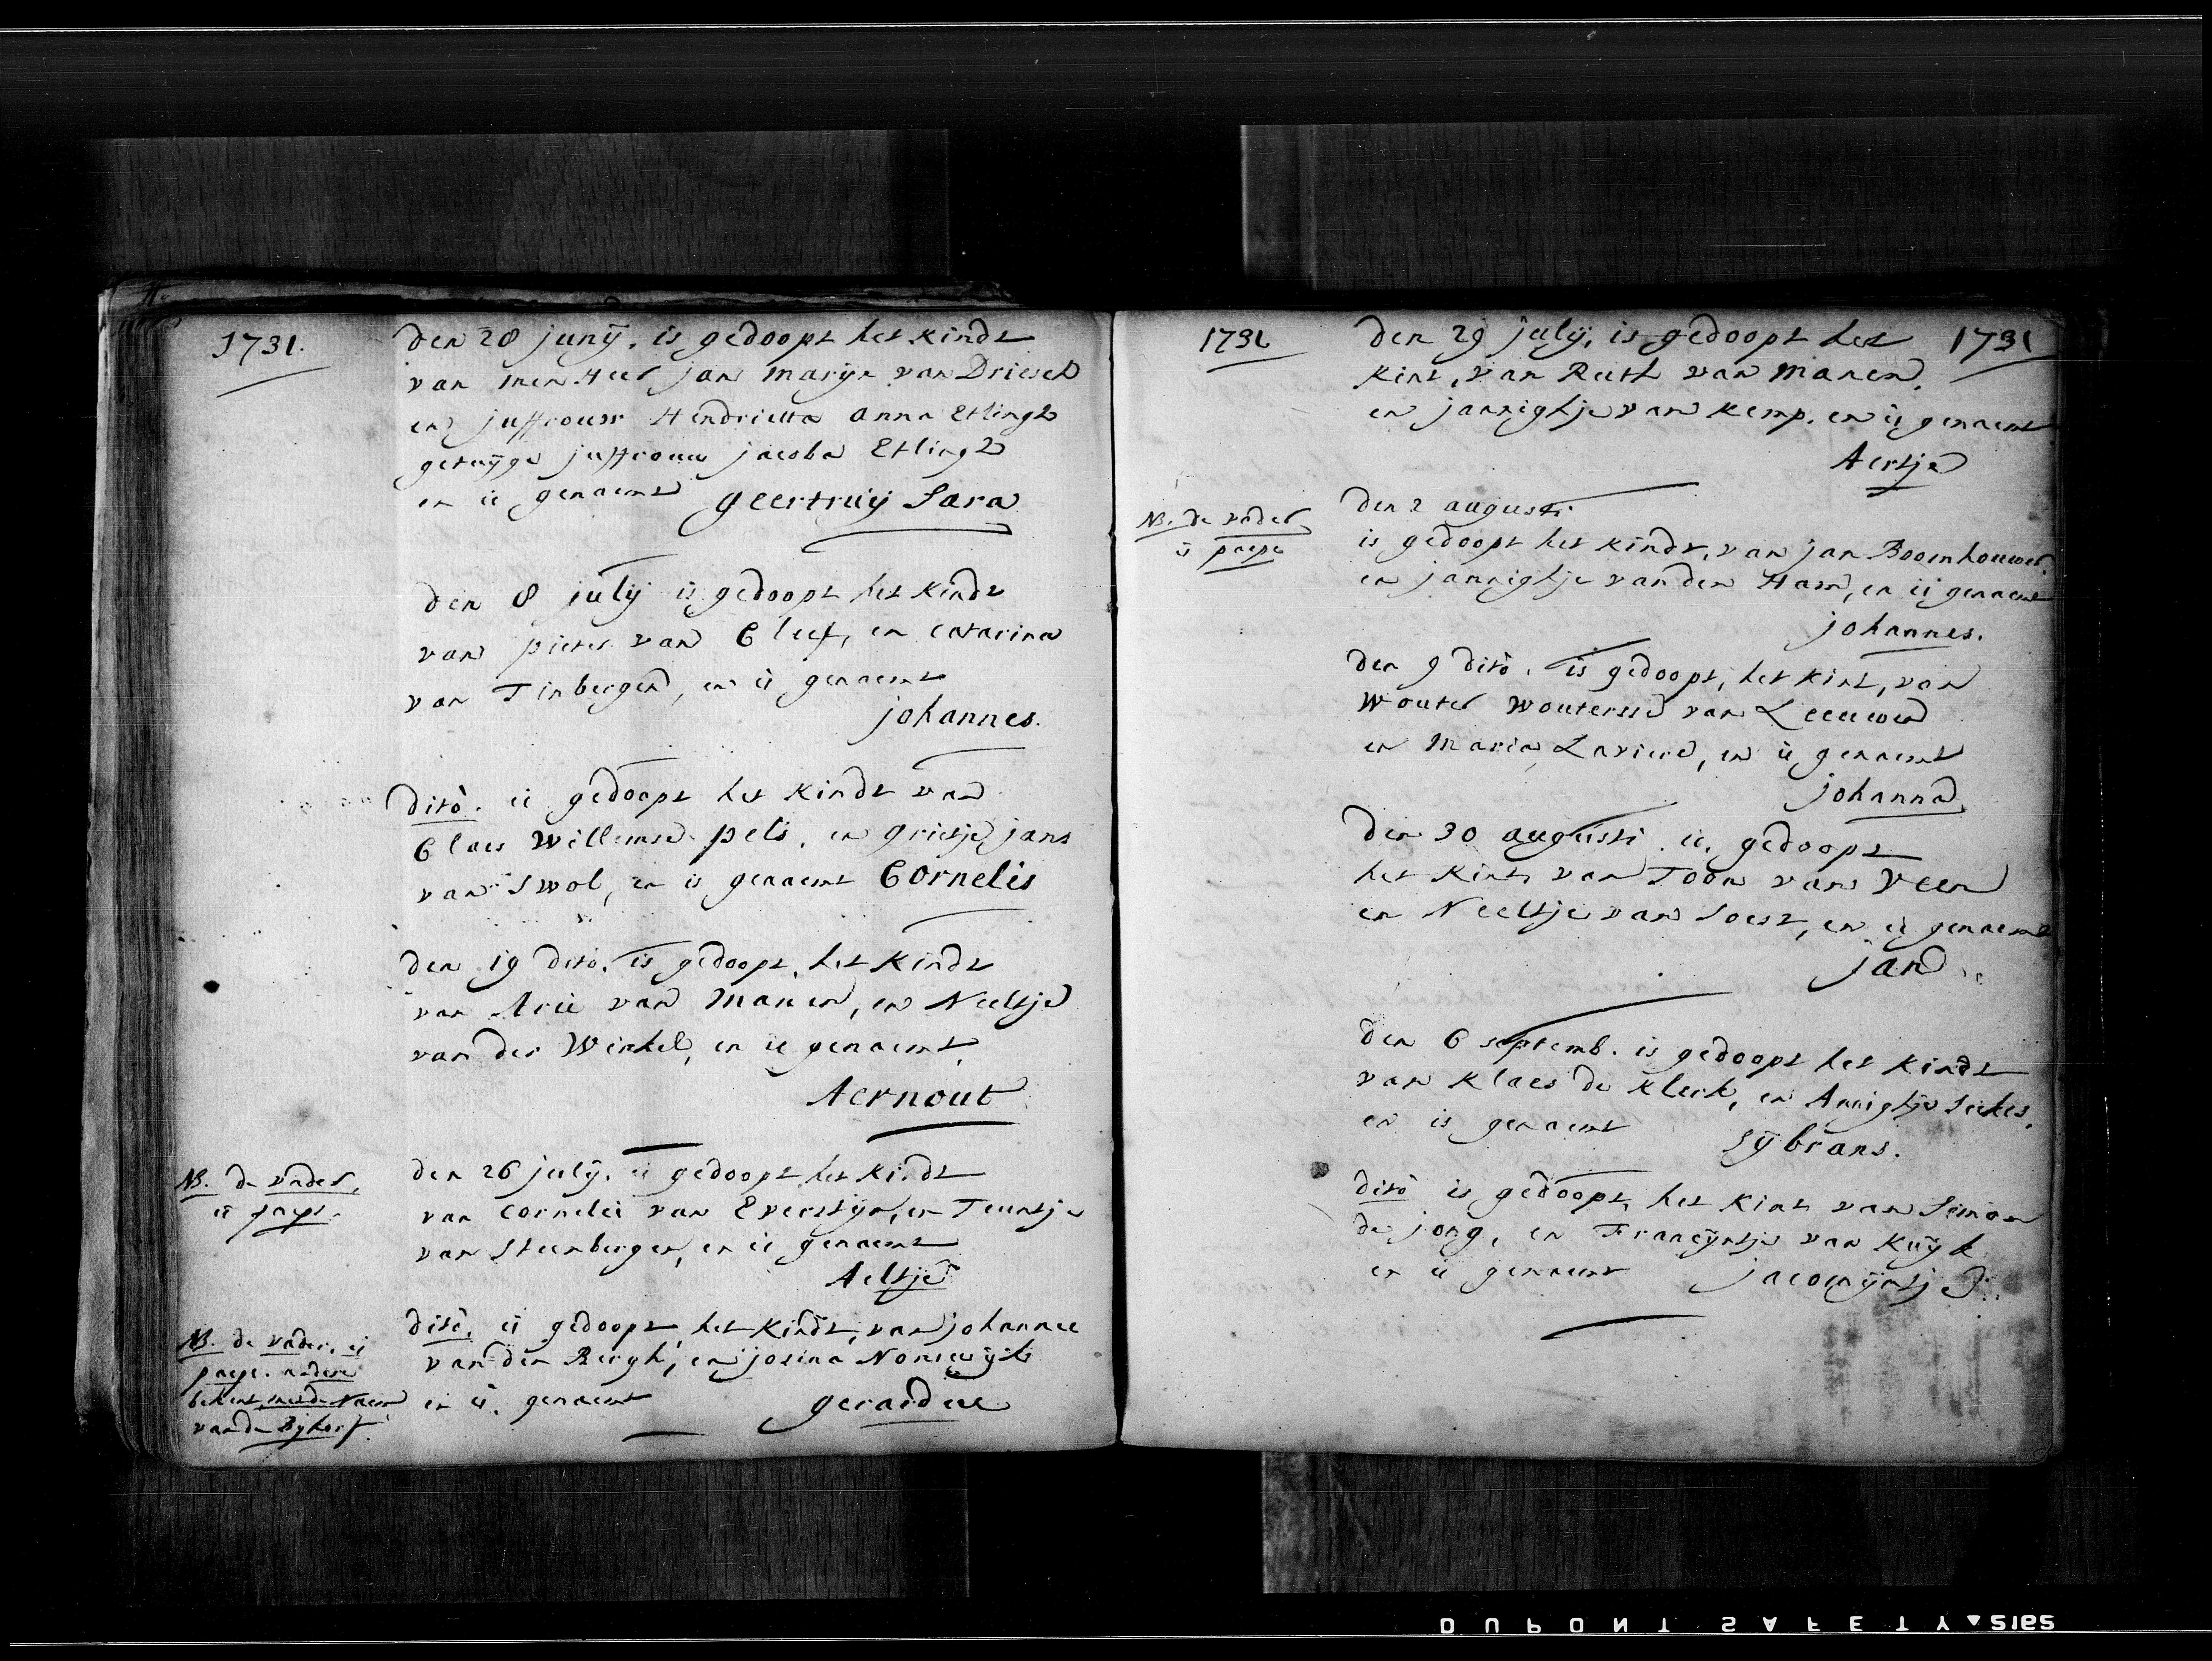 1731.
den 28 junij. is gedoopt het kindt
van men Heer jan marijn van Driesch
en juffrouw Hendrietta anna Etlingh
getuijge juffrouw jacoba Etlingh
en is genaemt geertruij Sara
den 8 julij is gedoopt het kindt
van pieter van Cleef, en catarina
van Tinbergen, en is genaemt
johannes.
dito. is gedoopt het kindt van
Claes Willemse pels, en grietje jans
van Swol, en is genaemt Cornelis
den 19 dito. is gedoopt, het kindt
van Arie van Manen, en Neeltje
van der Winkel, en is genaemt
Aernout
NB. de vader
is paeps.
den 26 julij. is gedoopt het kindt
van Cornelis van Everstijn, en Teuntje
van Steenbergen, en is genaemt
Aeltje
NB. de vader, is
paeps. 
bekent met de naem
van de Bijkerf.
dito, is gedoopt het kindt, van johannes
van den Bergh, en josina
en is genaemt gerardus
1731
den 29 julij, is gedoopt het 1731
kint, van Ruth van Manen,
en jannightje van Kemp. en is genaemt
Aertje
NB. de vader
is paeps
den 2 augusti
is gedoopt het kindt, van jan Boomhouwer.
en jannightje van den Ham, en is genaemt
johannes.
den 9 dito. is gedoopt, het kint, van
Wouter Wouterse van Leeuwen
en Maria Laviere, en is genaemt
johanna
den 30 augusti. is. gedoopt
het kint van Toon van Veen
en Neeltje van Soest, en is genaemt
jan
den 6 septemb. is gedoopt het kindt
van Klaes de Klerk, en Annightje
en is genaemt Sijbrans.
dito is gedoopt, het kint van Simon
de jong, en Francijntje van Kuijk
en is genaemt jacomijntje
DUPONT SAFETY 5165